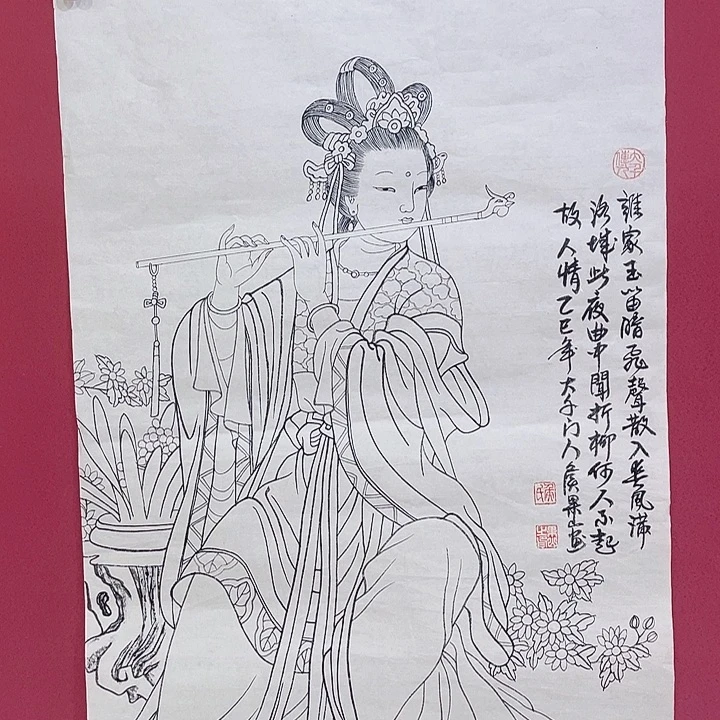 誰家玉笛暗飛聲散入春風滿
洛城此夜曲中聞折柳何人不起
故人情乙巳年大千门人